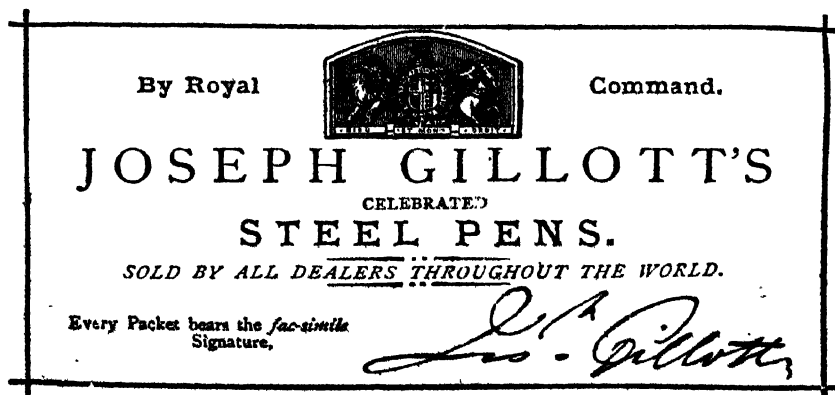 By Royal Command.
JOSEPH GILLOTT'S
CELEBRATED
STEEL PENS.
SOLD BY ALL DEALERS THROUGHOUT THE WORLD.
Every Packet bears the fac-simile
Signature,
Jos.h Gillott